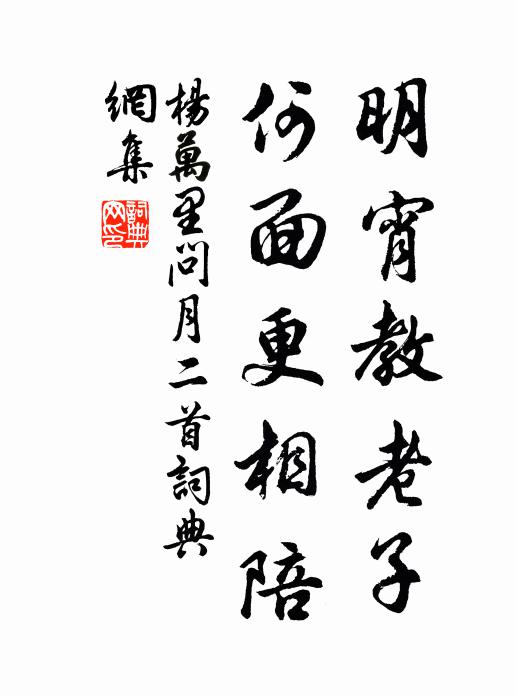 明宵教老子
何面更相陪
楊萬里問月二首詞典
網集
詞典網印